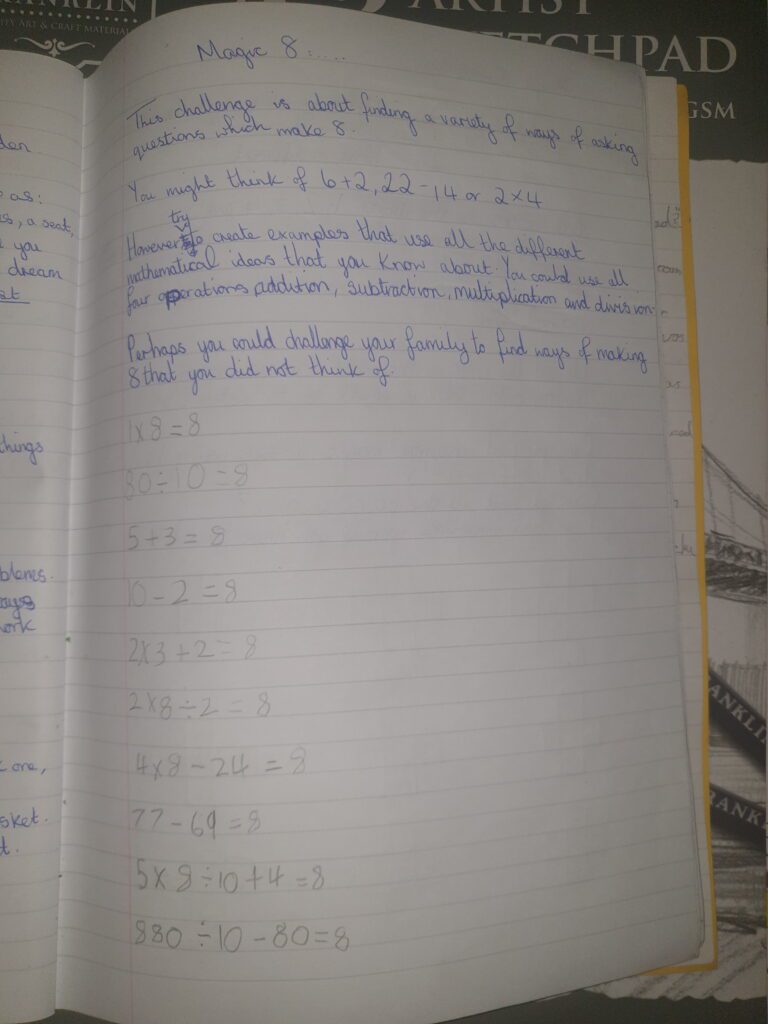 RANKLIN
ITY ART & CRAFT MATERIAL
ARTIST
TCHPAD
GSM
Magic 8.....
This challenge is about finding a variety of ways of asking
questions which make 8.
You might think of 6+2, 22-14 or 2×4
try
However to create examples that use all the different
mathematical ideas that you know about. You could use all
four operations addition, subtraction, multiplication and division.
Perhaps you could challenge your family to find ways of making
8 that you did not think of.
1×8=8
80÷10=8
5+3=8
10-2=8
2×3+2=8
2×8÷2=8
4×8-24=8
77-69=8
5×8÷10+4=8
880÷10-80=8
as:
s, a seat,
you
dream
things
blems.
ays
ork
one,
sket.
t.
ANKLI
RANK